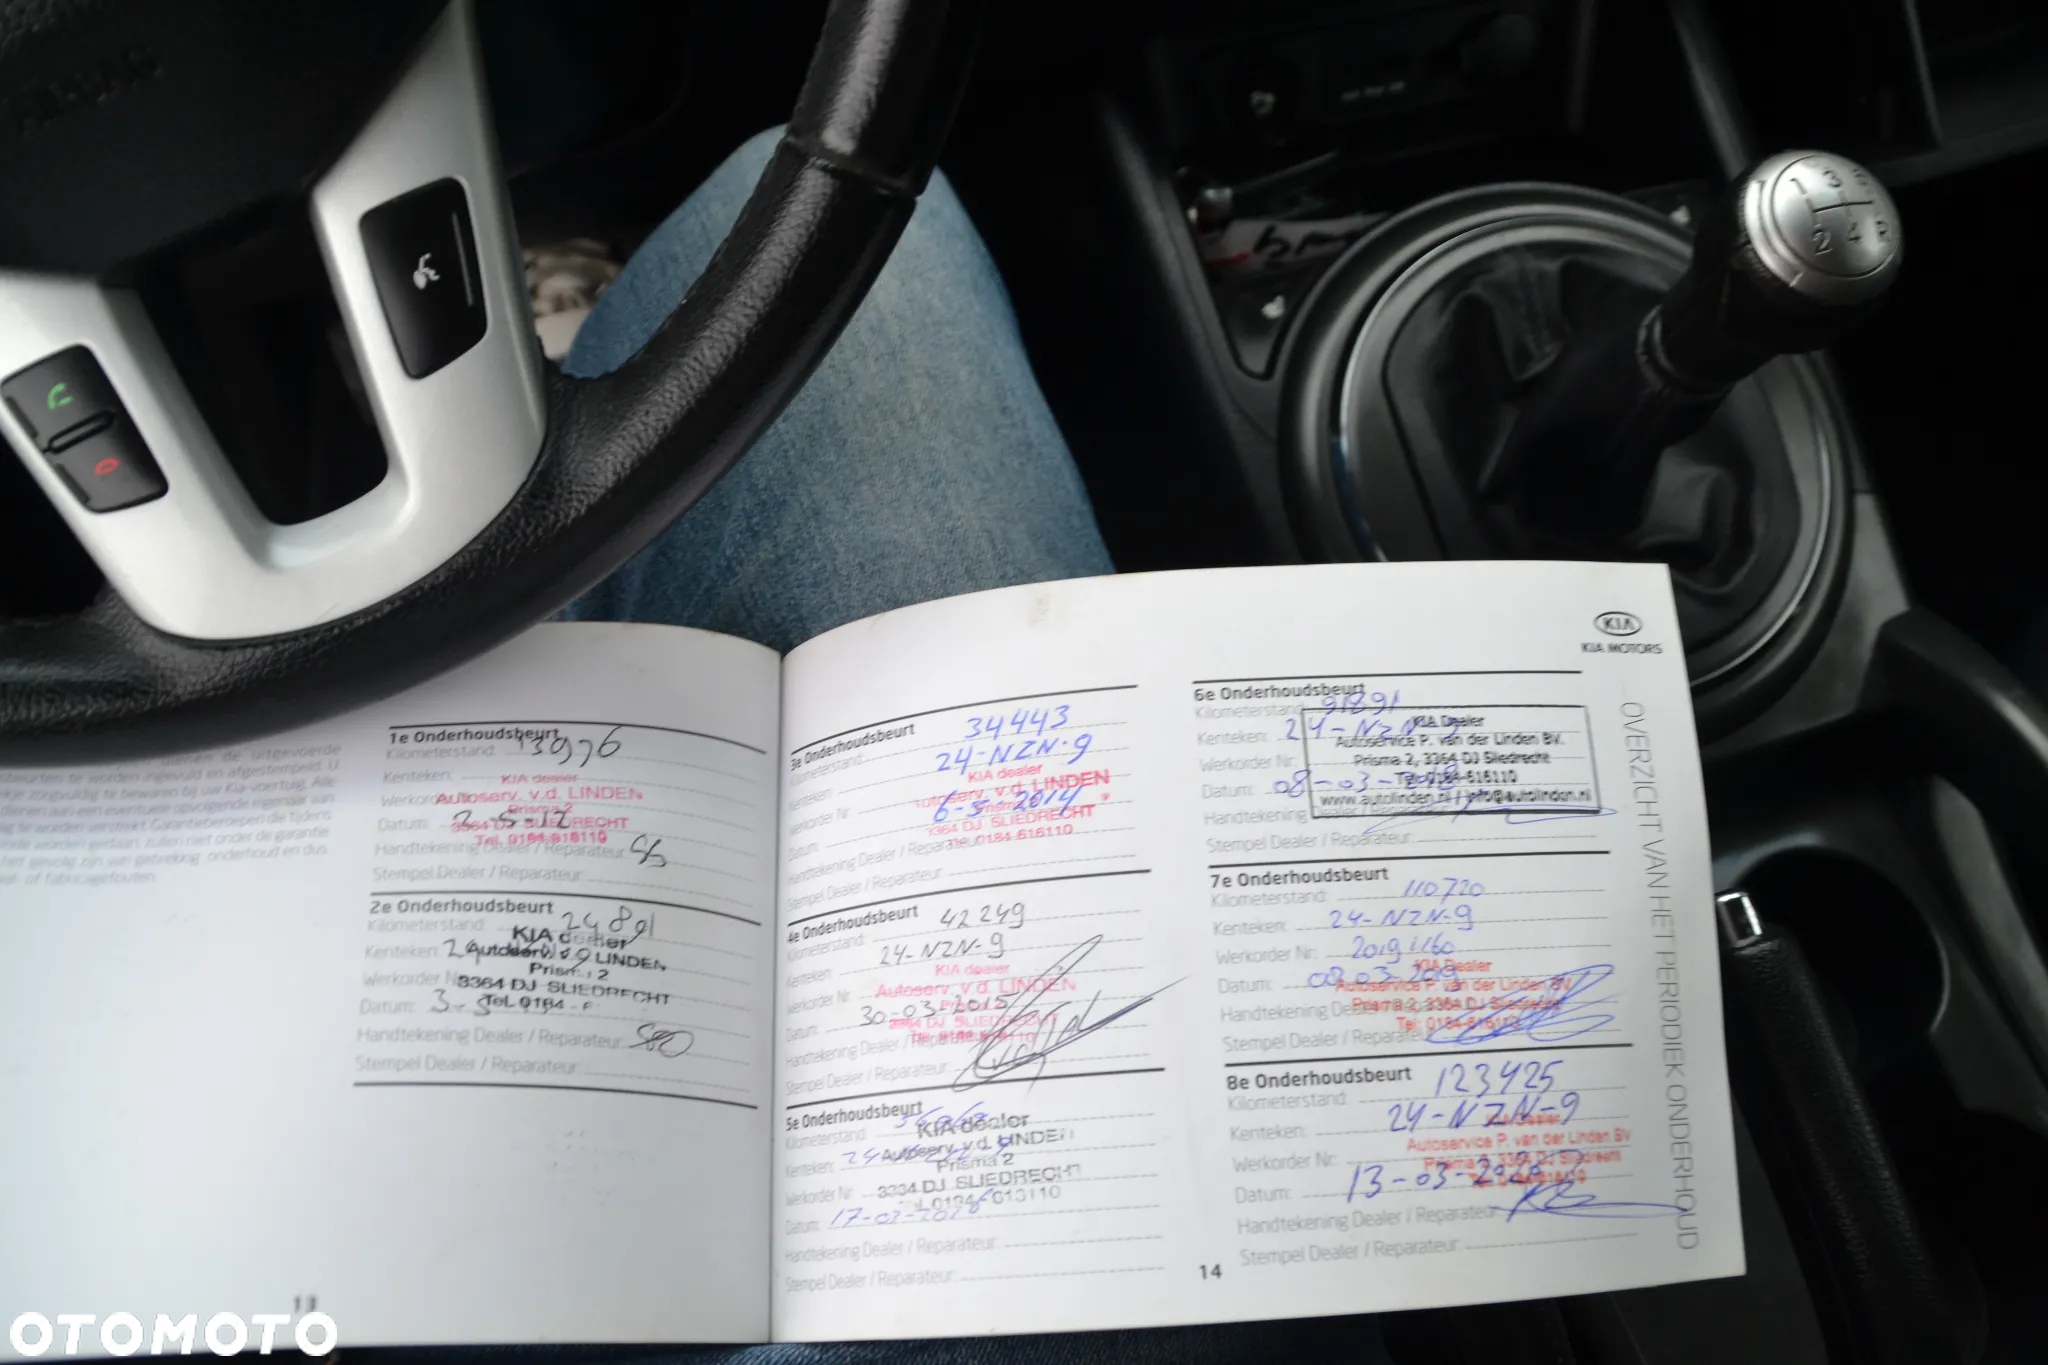 AIRBAG
1 3 5
2 4 R
KIA
KIA MOTORS
...OVERZICHT VAN HET PERIODIEK ONDERHOUD
dienen de uitgevoerde
te worden ingevuld en afgestempeld. U
zorgvuldig te bewaren bij uw Kia-voertuig. Alle
dienen aan een eventuele opvolgende eigenaar van
te worden verstrekt. Garantieberoepen die tijdens
worden gedaan, zullen niet onder de garantie
het gevolg zijn van gebrekkig onderhoud en dus
of fabricagefouten.
13
1e Onderhoudsbeurt
Kilometerstand: 13976
Kenteken:
KIA dealer
Autoserv. v.d. LINDEN
Prisma 2
Datum:
3364 DJ SLIEDRECHT
Tel. 0184-616110
Handtekening Dealer / Reparateur:
Stempel Dealer / Reparateur:
2e Onderhoudsbeurt
Kilometerstand:
KIA dealer
Kenteken:
Autoserv. v.d. LINDEN
Prisma 2
Werkorder Nr.
3364 DJ SLIEDRECHT
Datum:
Tel. 0184
Handtekening Dealer / Reparateur:
Stempel Dealer / Reparateur:
3e Onderhoudsbeurt
Kilometerstand: 34443
Kenteken: 24-NZN-9
KIA dealer
Autoserv. v.d. LINDEN
Werkorder Nr.
6-5-2014
3364 DJ SLIEDRECHT
Datum:
Tel. 0184-616110
Handtekening Dealer / Reparateur:
Stempel Dealer / Reparateur:
4e Onderhoudsbeurt
Kilometerstand: 42249
Kenteken: 24-NZN-9
KIA dealer
Autoserv. v.d. LINDEN
Werkorder Nr.
Datum: 30-03-2015
3364 DJ SLIEDRECHT
Handtekening Dealer / Reparateur:
Stempel Dealer / Reparateur:
5e Onderhoudsbeurt
Kilometerstand:
KIA dealer
Kenteken:
Autoserv. v.d. LINDEN
Prisma 2
Werkorder Nr.
3364 DJ SLIEDRECHT
Tel. 0184-616110
Datum:
Handtekening Dealer / Reparateur:
Stempel Dealer / Reparateur:
6e Onderhoudsbeurt
Kilometerstand: 91891
Kenteken: 24-NZN-9
KIA Dealer
Autoservice P. van der Linden BV.
Werkorder Nr:
Prisma 2, 3364 DJ Sliedrecht
Tel. 0184-616110
Datum: 08-03-2018
www.autolinden.nl / info@autolinden.nl
Handtekening Dealer / Reparateur:
Stempel Dealer / Reparateur:
7e Onderhoudsbeurt
Kilometerstand: 110720
Kenteken: 24-NZN-9
Werkorder Nr:
KIA Dealer
Datum: 08-03-2019
Autoservice P. van der Linden BV
Prisma 2, 3364 DJ Sliedrecht
Tel: 0184-616110
Handtekening Dealer
Stempel Dealer / Reparateur
8e Onderhoudsbeurt
Kilometerstand: 123425
Kenteken: 24-NZN-9
KIA Dealer
Autoservice P. van der Linden BV
Werkorder Nr:
Prisma 2, 3364 DJ Sliedrecht
Datum: 13-03-2020
Handtekening Dealer / Reparateur
Stempel Dealer / Reparateur:
14
OTOMOTO